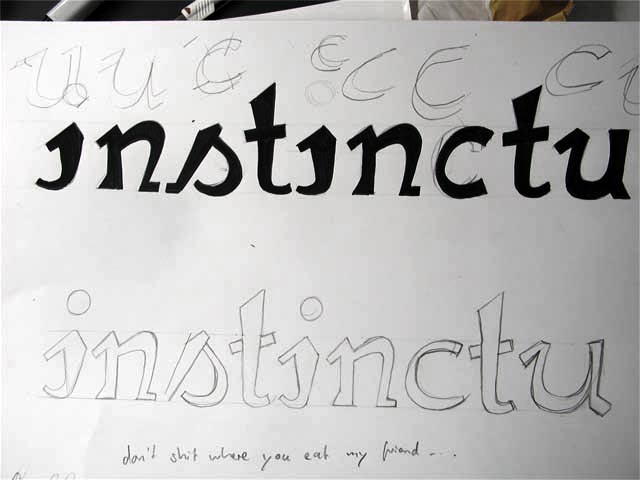 u u c c c c c
ınstınctu
instinctu
don't shit where you eat my friend ...